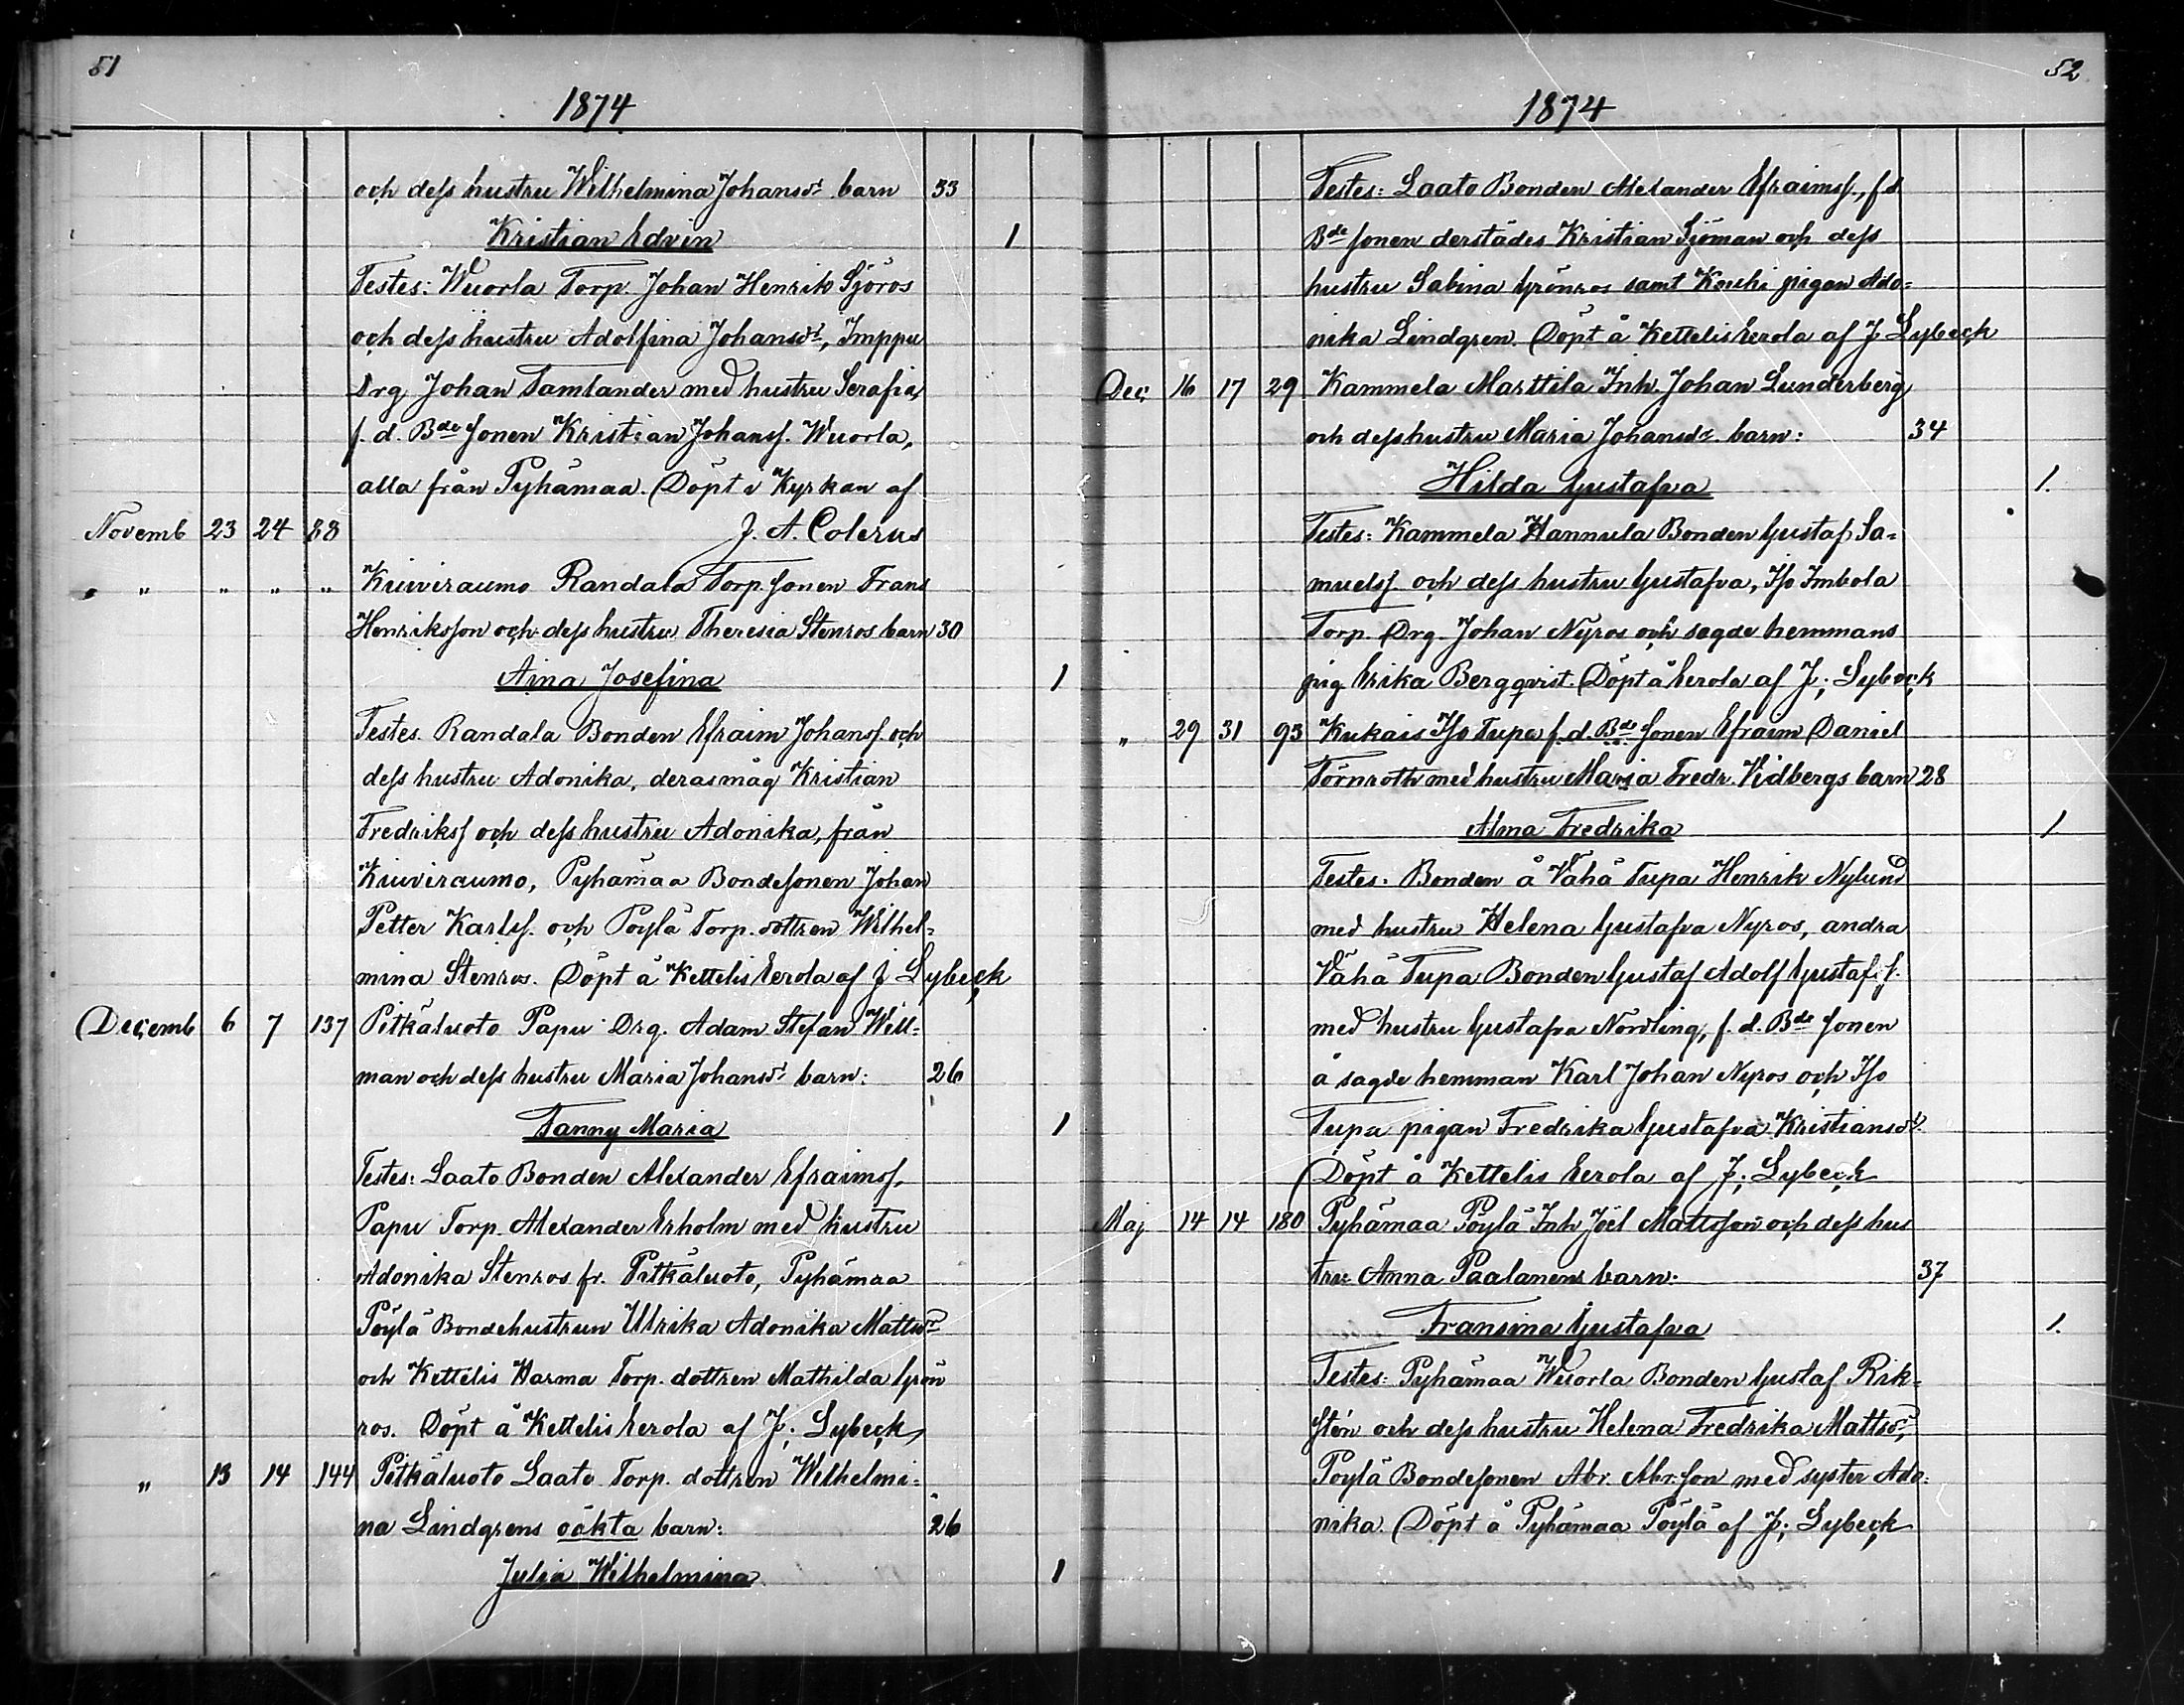 51
1874
och dess hustru Wilhelmina Johansdr barn 33
Kristian Edvin 1
Testes: Wuorla Torp. Johan Henrik Sjöros
och dess hustru Adolfina Johansdr, Imppu
Drg Johan Tamlander med hustru Serafia,
f. d. Bde sonen Kristian Johanss. Wuorla,
alla från Pyhämaa. Döpt i Kyrkan af
Novemb 23 24 88 J. A. Colerus
" " " " Kiuviraumo Randala Torp. sonen Frans
Henriksson och dess hustru Theresia Stenros barn 30
Aina Josefina 1
Testes. Randala Bonden Efraim Johanss. och
dess hustru Adonika, deras måg Kristian
Fredrikss och dess hustru Adonika, från
Kiuviraumo, Pyhämaa Bondesonen Johan
Petter Karlss. och Pöylä Torp. dottren Wilhel-
mina Stenros. Döpt å Kettelis Eerola af J Lybeck
Decemb 6 7 137 Pitkäluoto Papu Drg. Adam Stefan Well-
man och dess hustru Maria Johansdr barn: 26
Fanny Maria 1
Testes: Laato Bonden Alexander Efraimss.
Papu Torp. Alexander Erholm med hustru
Adonika Stenros fr. Pitkäluoto, Pyhämaa
Pöylä Bondehustrun Ulrika Adonika Mattsdr
och Kettelis Harma Torp. dottren Mathilda Grön
ros. Döpt å Kettelis Eerola af J. Lybeck
" 13 14 144 Pitkäluoto Laato Torp. dottren Wilhelmi-
na Lindgrens oäkta barn: 26
Julia Wilhelmina 1
52
1874
Testes: Laato Bonden Alexander Efraimss., f d
Bde sonen derstädes Kristian Sjöman och dess
hustru Sabina Grönros samt Kouhi pigan Ado-
nika Lindgren. Döpt å Kettelis Eerola af J Lybeck
Dec. 16 17 29 Kammela Marttila Inh. Johan Lunderberg
och dess hustru Maria Johansdr. barn: 34
Hilda Gustafva 1.
Testes: Kammela Hannula Bonden Gustaf Sa-
muelss. och dess hustru Gustafva, Iso Imbola
Torp. Drg. Johan Nyros och sagde hemmans
pig Erika Bergqvist. Döpt å Eerola af J. Lybeck
" 29 31 93 Kukais Iso Tupa f. d. Bde sonen Efraim Daniel
Törnroth med hustru Maria Fredr. Vidbergs barn 28
Alma Fredrika 1
Testes. Bonden å Vähä Tupa Henrik Nylund
med hustru Helena Gustafva Nyros, andra
Vähä Tupa Bonden Gustaf Adolf Gustafss.
med hustru Gustafva Nordling, f. d. Bde sonen
å sagde hemman Karl Johan Nyros och Iso
Tupa pigan Fredrika Gustafva Kristiansdr.
Döpt å Kettelis Eerola af J. Lybeck
Maj 14 14 180 Pyhämaa Pöylä Inh Joel Mattsson och dess hus
tru Anna Paalanens barn: 37
Fransina Gustafva 1.
Testes: Pyhämaa Wuorla Bonden Gustaf Rik-
stén och dess hustru Helena Fredrika Mattsdr,
Pöylä Bondesonen Abr. Abr:son med syster Ado-
nika. Döpt å Pyhämaa Pöylä af J. Lybeck